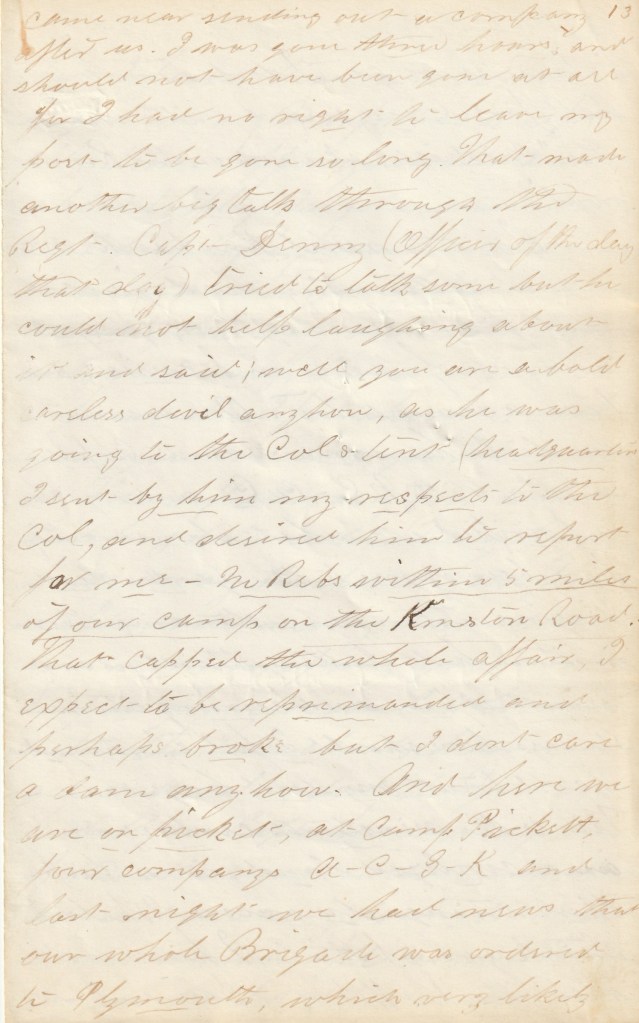 came near sending out a company 13
after us. I was gone three hours, and
should not have been gone at all
for I had no right to leave my
post to be gone so long. That made
another big talk through the
Regt. Capt Denny (Officer of the day
that day) tried to talk some but he
could not help laughing about
it and said; well you are a bold
careless devil anyhow, as he was
going to the Cols tent (headquarters
I sent by him my respects to the
Col, and desired him to report
for me - No Rebs within 5 miles
of our camp on the Kinston Road.
That capped the whole affair, I
expect to be reprimanded and
perhaps broke but I dont care
a dam anyhow. And here we
are on picket, at Camp Pickett,
four companys A-C-G-K and
last night we had news that
our whole Brigade was ordered
to Plymouth, which very likely